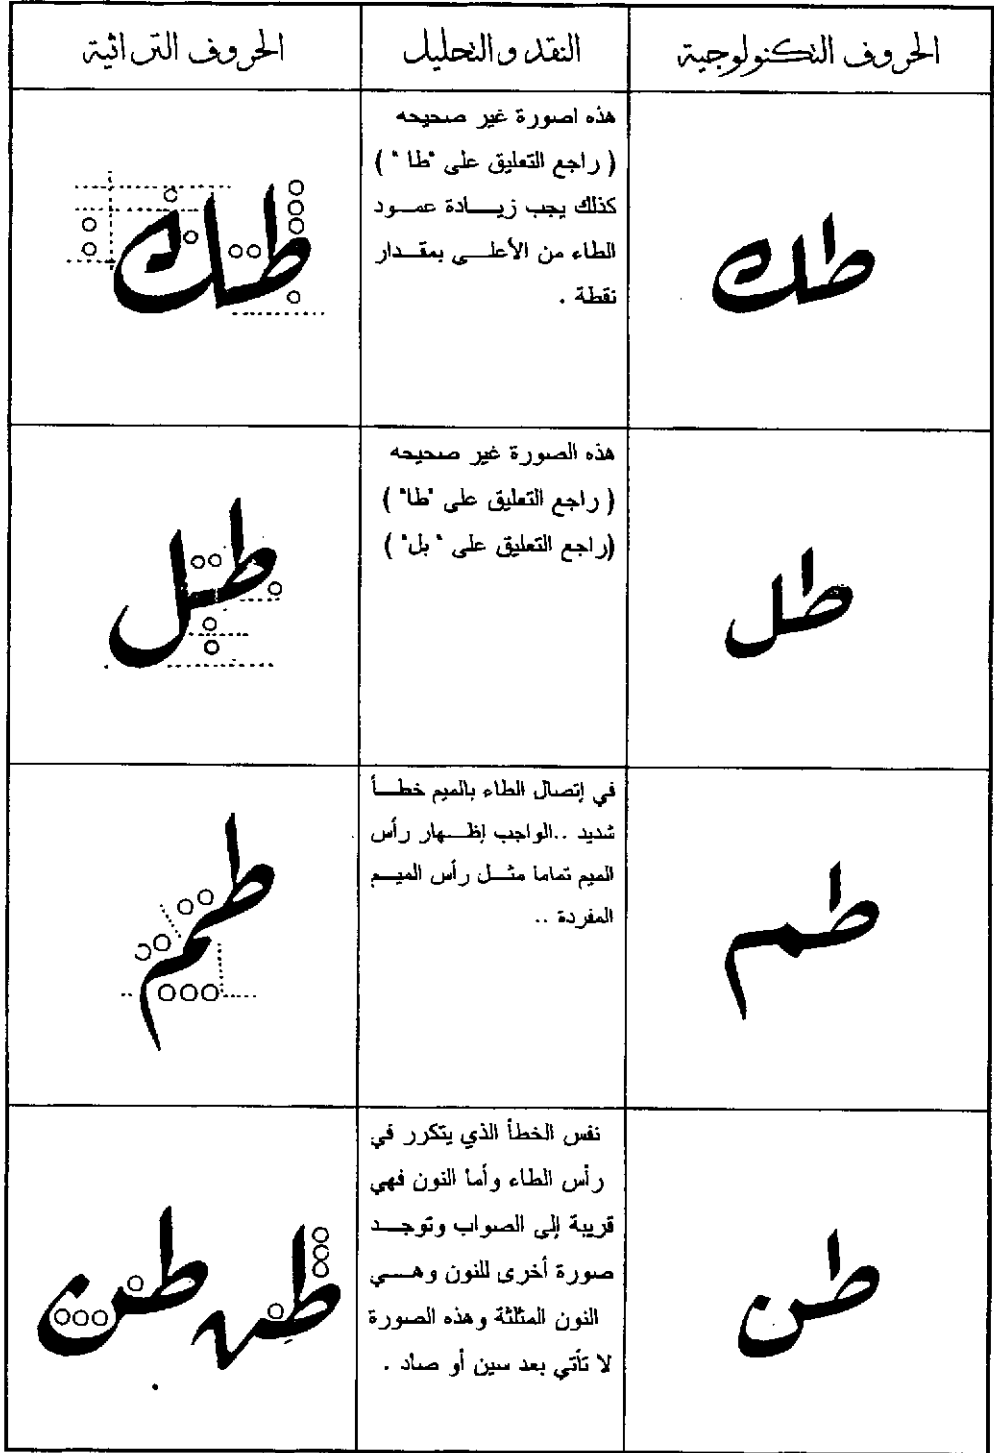 الحروف التكنولوجية
النقد والتحليل
الحروف التراثية
طك
هذه اصورة غير صحيحه
( راجع التعليق على "طا " )
كذلك يجب زيـــادة عمــود
الطاء من الأعلــى بمقــدار
نقطة .
طك
طل
هذه الصورة غير صحيحه
( راجع التعليق على "طا" )
(راجع التعليق على " بل" )
طل
طم
في إتصال الطاء بالميم خطــأ
شديد ..الواجب إظــهار رأس
الميم تماما مثــل رأس الميــم
المفردة ..
طحم
طن
نفس الخطأ الذي يتكرر في
رأس الطاء وأما النون فهي
قريبة إلى الصواب وتوجــد
صورة أخرى للنون وهــي
النون المثلثة وهذه الصورة
لا تأتي بعد سين أو صاد .
طن طن